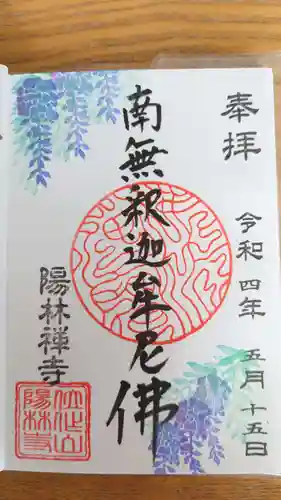 奉拝
令和四年 五月 十五日
南無釈迦牟尼佛
陽林禅寺